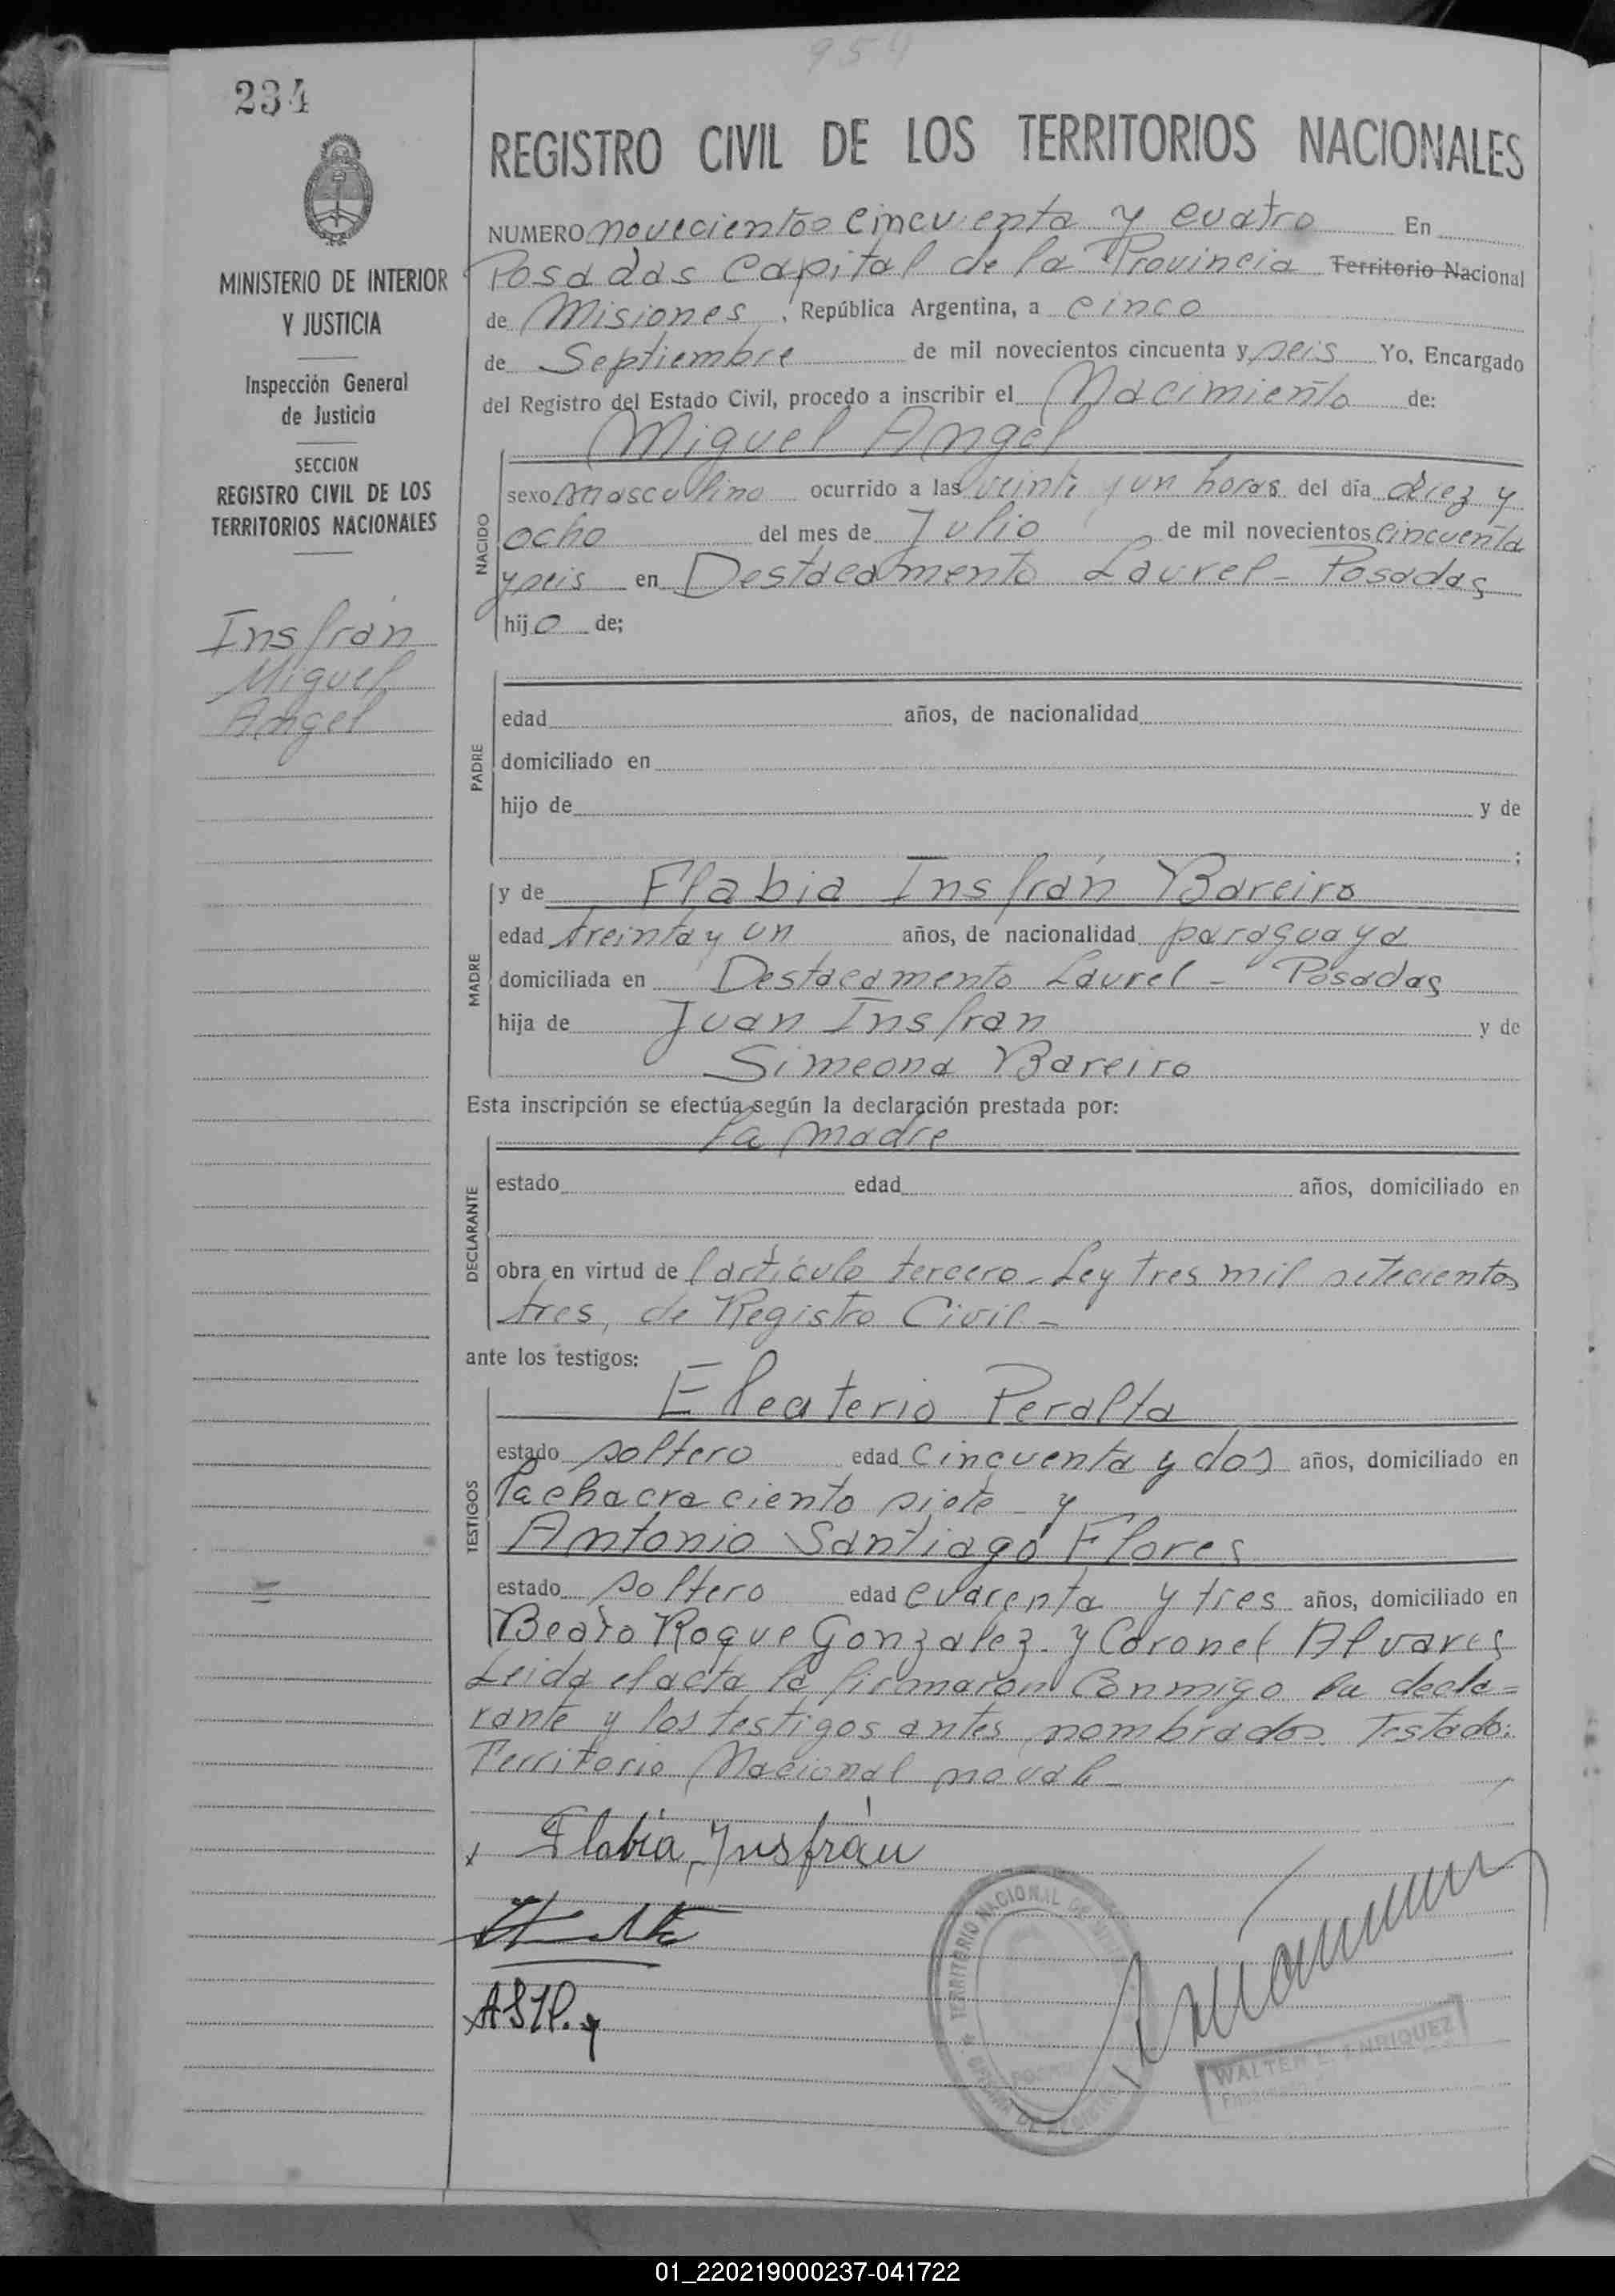 954
234
REGISTRO CIVIL DE LOS TERRITORIOS NACIONALES
MINISTERIO DE INTERIOR
Y JUSTICIA
Inspección General
de Justicia
SECCION
REGISTRO CIVIL DE LOS
TERRITORIOS NACIONALES
Insfrán
Miguel
Angel
NUMERO novecientos cincuenta y cuatro En
Posadas Capital de la Provincia Territorio Nacional
de Misiones, República Argentina, a cinco
de Septiembre de mil novecientos cincuenta y seis Yo, Encargado
del Registro del Estado Civil, procedo a inscribir el Nacimiento de:
Miguel Angel
NACIDO
sexo masculino ocurrido a las veinti y un horas del día diez y
ocho del mes de Julio de mil novecientos cincuenta
y seis en Destacamento Laurel - Posadas
hijo de;
PADRE
edad años, de nacionalidad
domiciliado en
hijo de y de
;
MADRE
y de Flabia Insfrán Bareiro
edad treinta y un años, de nacionalidad paraguaya
domiciliada en Destacamento Laurel - Posadas
hija de Juan Insfran y de
Simeona Bareiro
Esta inscripción se efectúa según la declaración prestada por:
la madre
DECLARANTE
estado edad años, domiciliado en
obra en virtud de l artículo tercero - Ley tres mil setecientos
tres, de Registro Civil -
ante los testigos:
TESTIGOS
Eleaterio Peralta
estado soltero edad cincuenta y dos años, domiciliado en
la chacra ciento siete y
Antonio Santiago Flores
estado soltero edad cuarenta y tres años, domiciliado en
Beato Roque Gonzalez y Coronel Alvares
Leida el acta la firmaron conmigo la decla=
rante y los testigos antes nombrados. Testado:
Territorio Nacional no vale -
Flabia Insfrán
TERRITORIO NACIONAL DE
WALTER E. ENRIQUEZ
01_220219000237-041722